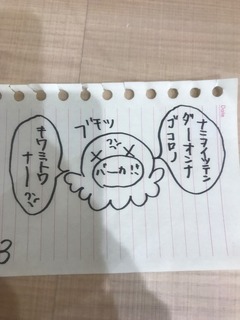 ナミヲイッテン
ダーオンナ
ゴコロノ
ブチッ
!?
バーカ!!
キワミトワ
ナー!?
Date